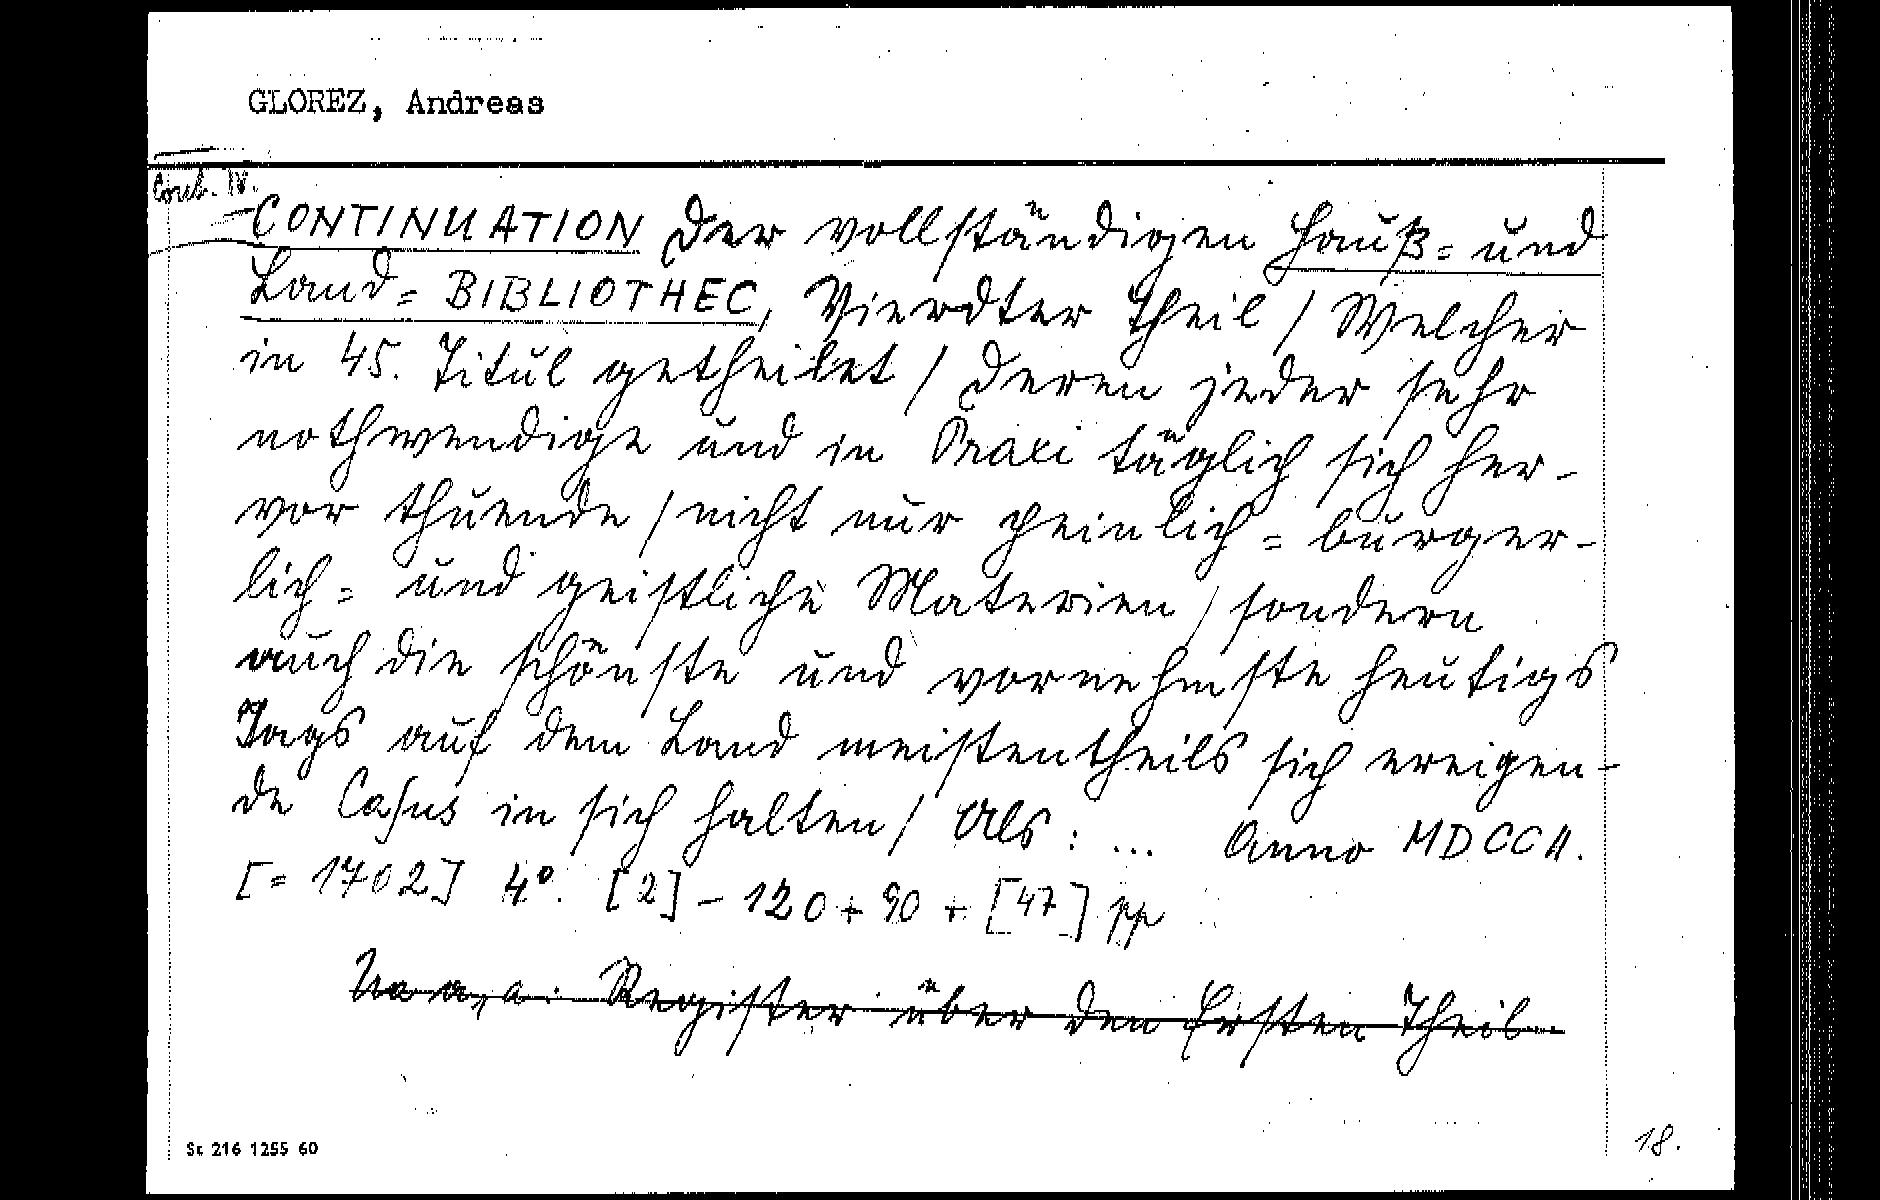 GLOREZ, Andreas
Cont. IV.
CONTINUATION Der vollständigen Hauß= und
Land= BIBLIOTHEC, Vierdter Theil / Welcher
in 45. Titul getheilet / Deren jeder sehr
nothwendige und in Praxi täglich sich her-
vor thuende / nicht nur peinlich= bürger-
lich= und geistliche Materien / sondern
auch die schönste und vornehmste heutigs
Tags auf dem Land meistentheils sich ereigen-
de Casus in sich halten / Als: ... Anno MDCCII.
[= 1702] 4°. [2] - 120 + 90 + [47] pp
Register über den Ersten Theil
St 216 1255 60
18.